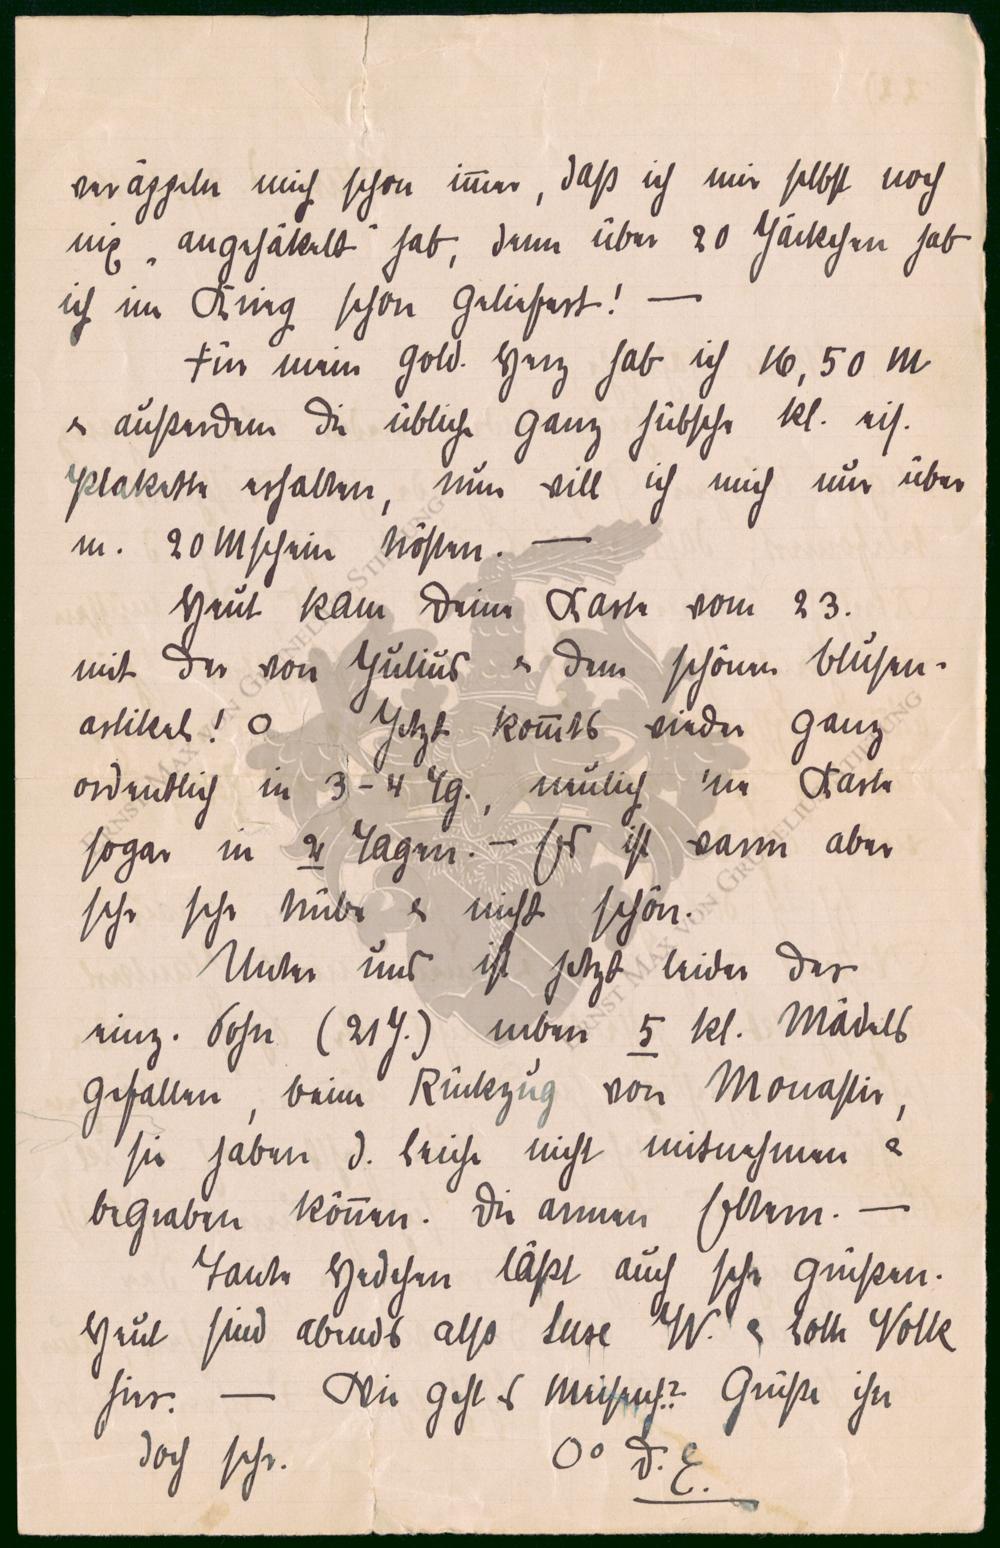 veräppeln mich schon im̅er, daß ich mir selbst noch
nix „angehäkelt" hab, denn über 20 Jäckchen hab
ich im Krieg schon geliefert! —
Für mein gold. Herz hab ich 16,50 M
& außerdem die übliche ganz hübsche kl. eis.
Plakette erhalten, nun will ich mich nur über
m. 20 Mschein trösten. —
Heut kam Deine Karte vom 23.
mit der von Julius & dem schönen Blusen-
artikel! O Jetzt kom̅ts wieder ganz
ordentlich in 3-4 Tg., neulich 'ne Karte
sogar in 2 Tagen. — Es ist warm aber
sehr sehr trübe & nicht schön.
Unter uns ist jetzt leider der
einz. Sohn (21 J.) neben 5 kl. Mädels
gefallen, beim Rückzug von Monastir,
sie haben d. Leiche nicht mitnehmen &
begraben kön̅en. Die armen Eltern. —
Tante Hedchen läßt auch sehr grüßen.
Heut sind abends also Luse W. & Lotte Volk
hier. — Wie geht's Meisench? Grüße ihn
doch sehr. Oo D. E.
ERNST MAX VON GRUNELIUS STIFTUNG
ERNST MAX VON GRUNELIUS STIFTUNG